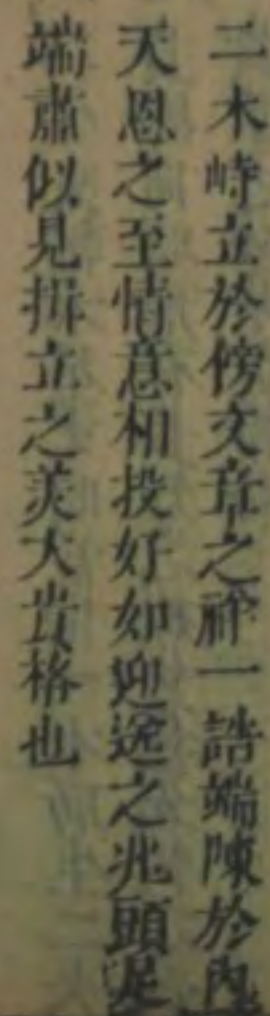 二木峙立於傍文章之祥一誥端陳於內
天恩之至情意相投好如迎送之兆頭足
端肅似見揖立之美大貴格也